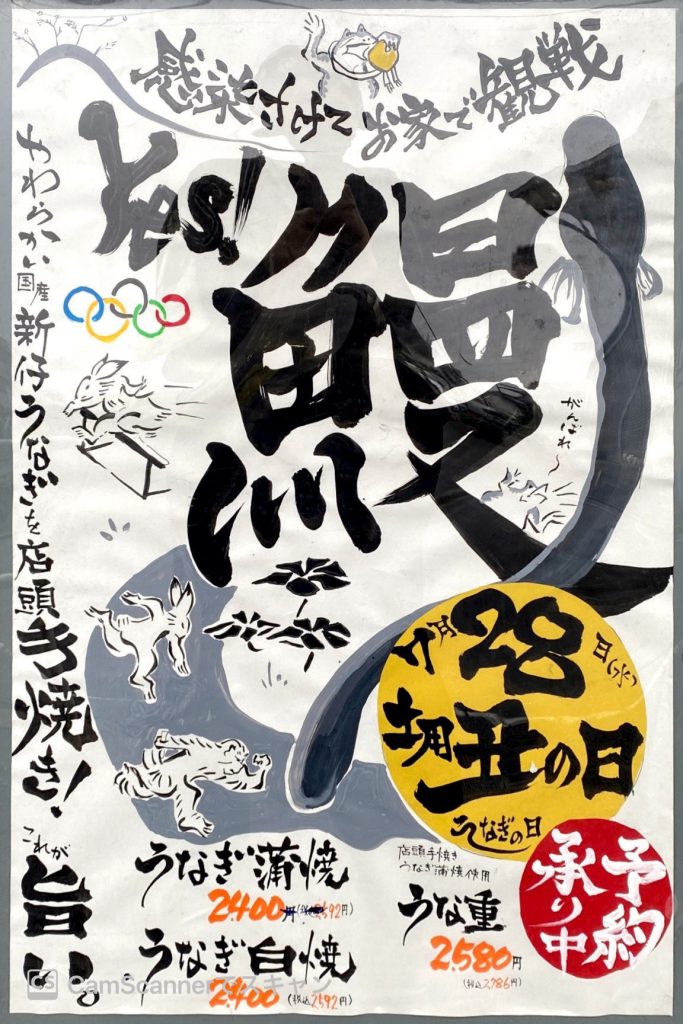 感染さけてお家で観戦
Yes!
鰻
やわらかい国産新仔うなぎを店頭手焼き!
これが旨い。
がんばれ〜
7月28日(水)
土用丑の日
うなぎの日
うなぎ蒲焼
2400円(税込2592円)
うなぎ白焼
2400(税込2592円)
店頭手焼き
うなぎ蒲焼使用
うな重
2.580円
(税込2,786円)
予約
承り中
CS CamScannerでスキャン